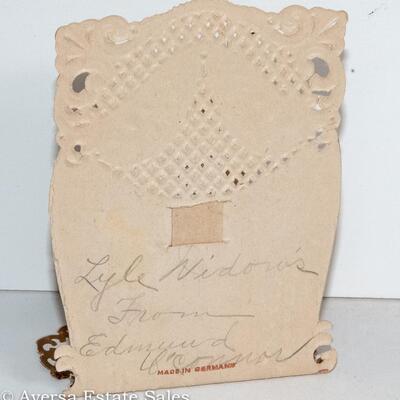 Lyle Widow's
From
Edmund
O'Connor
MADE IN GERMANY
© Aversa Estate Sales